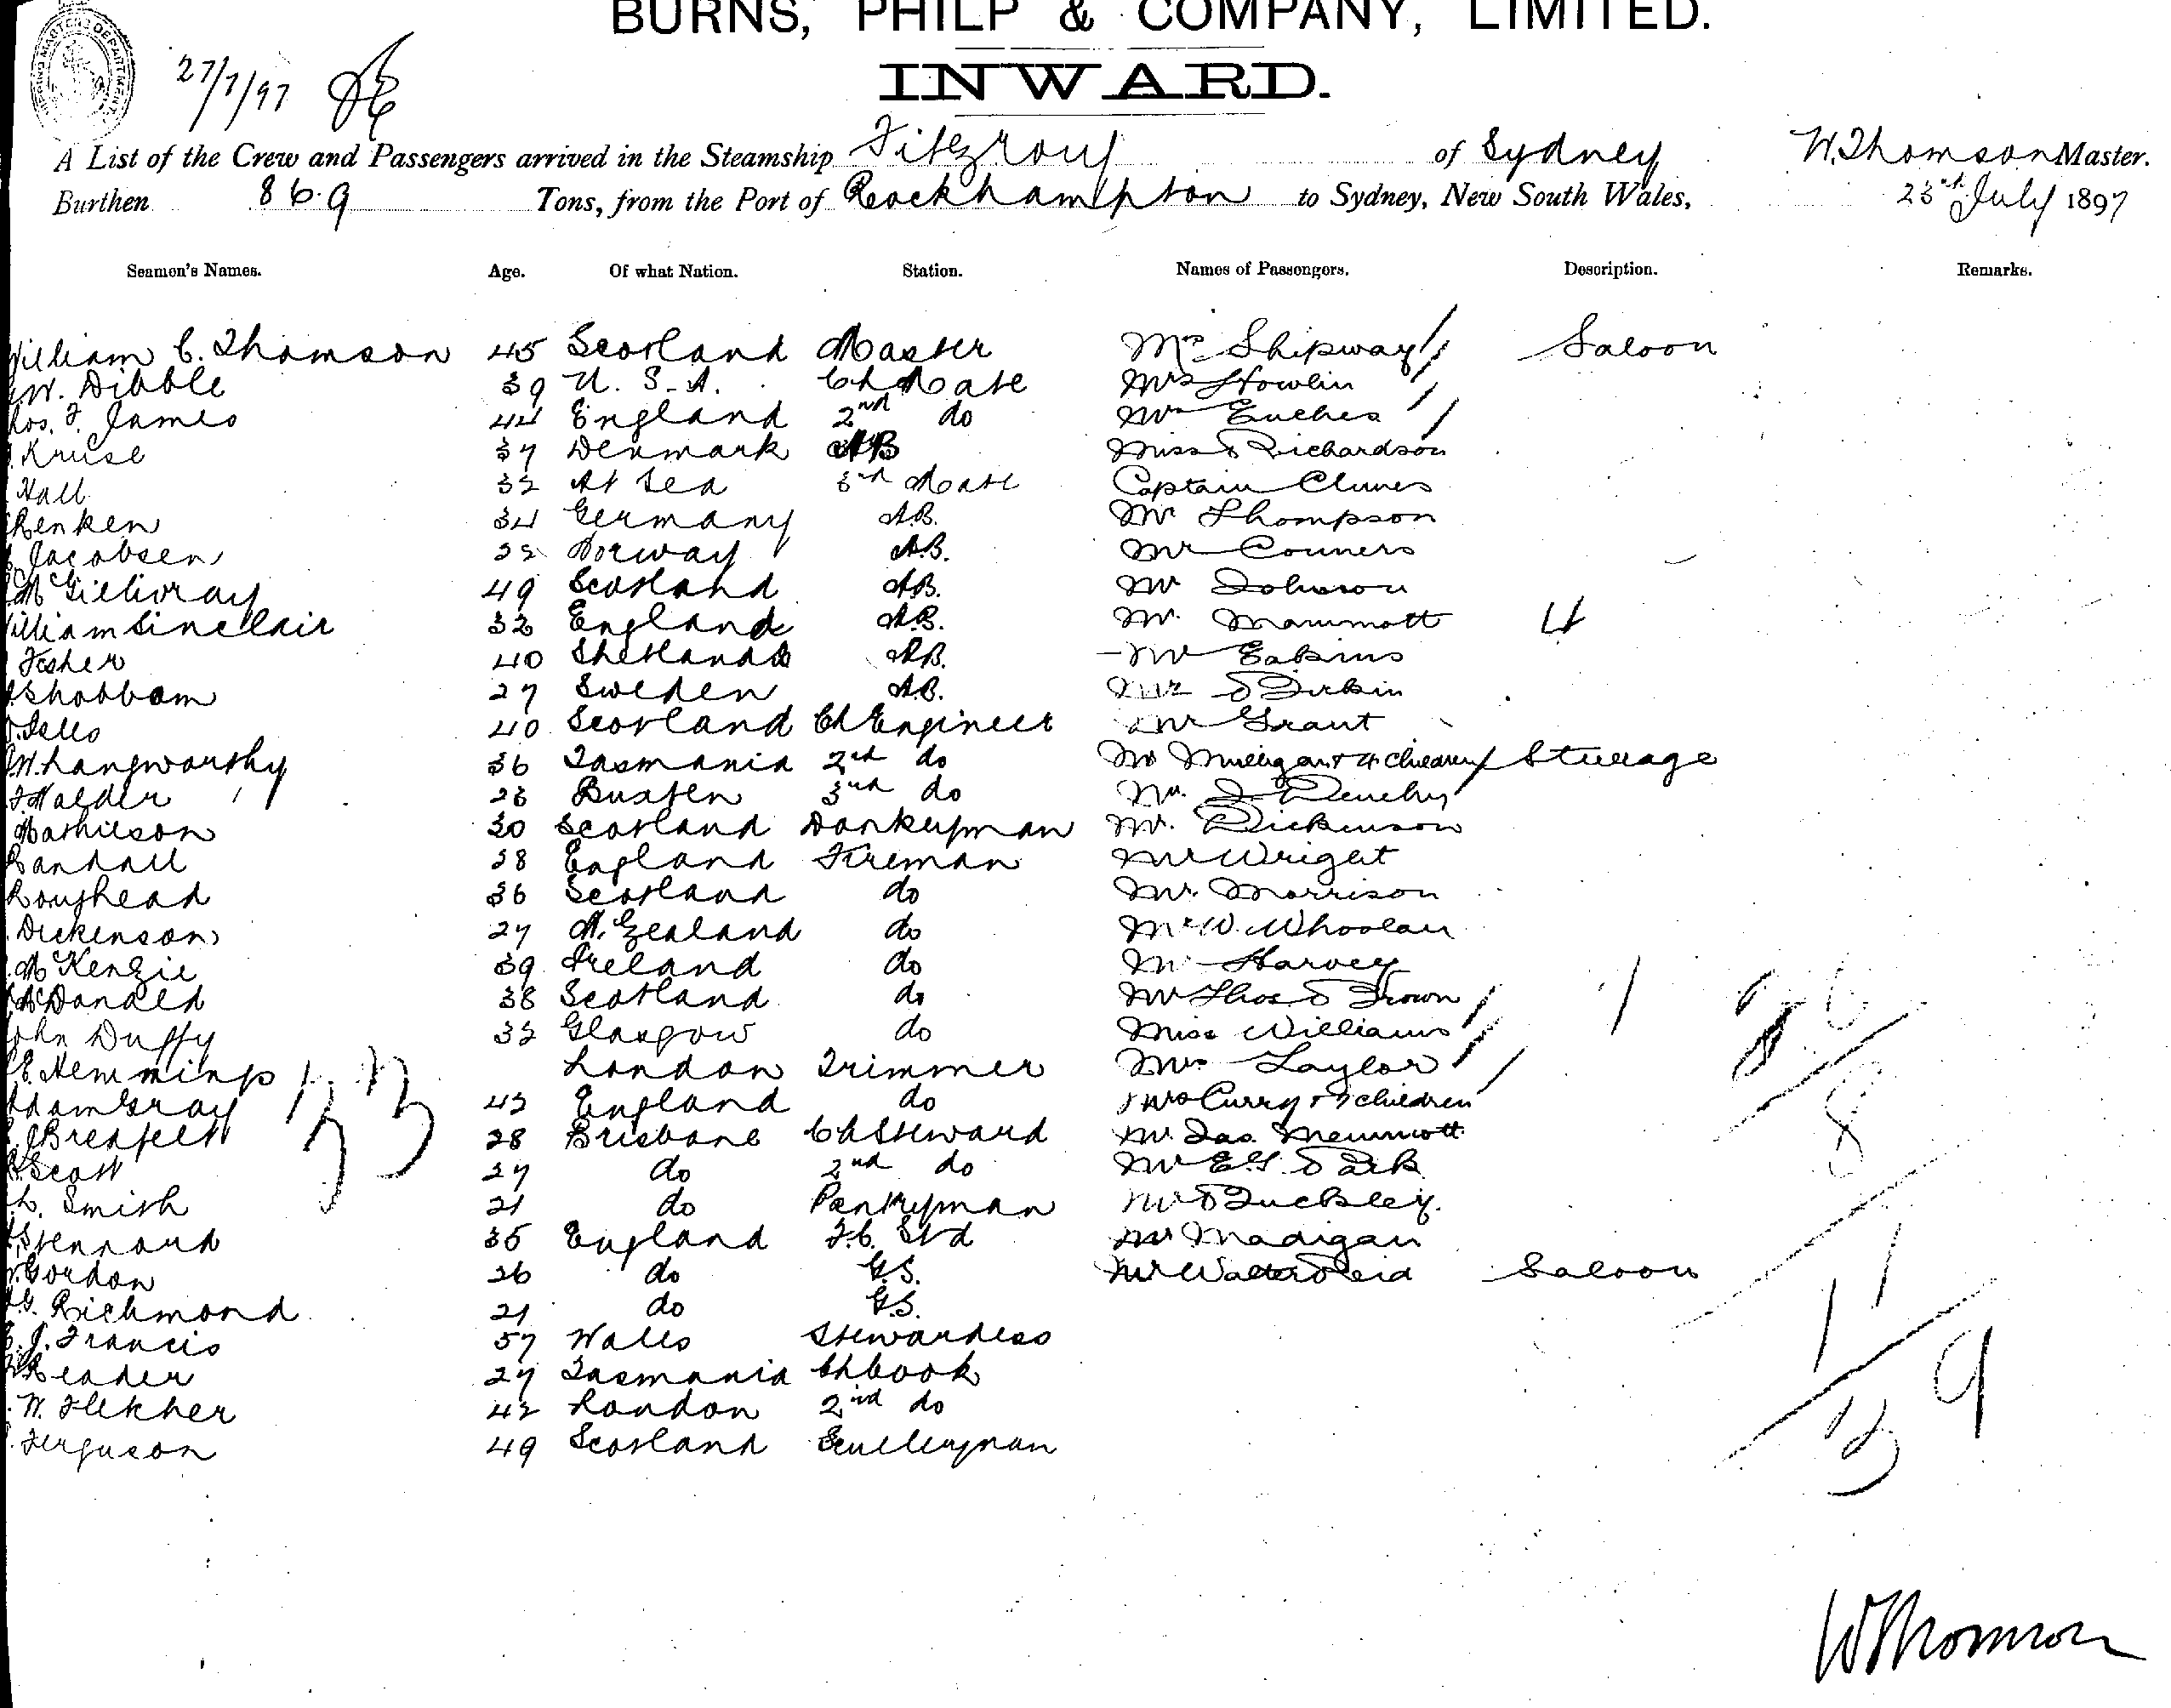 BURNS, PHILP & COMPANY, LIMITED.
INWARD.
27/7/97
A List of the Crew and Passengers arrived in the Steamship Fitzroy of Sydney W. Thomson Master.
Burthen 869 Tons, from the Port of Rockhampton to Sydney, New South Wales, 25th July 1897
Seamen's Names. Age. Of what Nation. Station. Names of Passengers. Description. Remarks.
William C. Thomson 45 Scotland Master Mrs Shipway Saloon
W. Dibble 39 U.S.A. Ch Mate Mrs Howlin
Thos. F. James 44 England 2nd do Mrs
Kruse 37 Denmark AB Miss Richardson
Hall 32 At Sea 3rd Mate Captain Clunes
Renken 34 Germany A.B. Mr Thompson
Jacobsen Norway A.B. Mr Conners
McGillivray 49 Scotland A.B. Mr Johnson
William Sinclair 32 England A.B. Mr. Mammott 4
40 Shetlands A.B. Mr Eakins
27 Sweden A.B. Mr
40 Scotland Ch Engineer Mr Grant
W. Langworthy 36 Tasmania 2nd do Mr Milligan + 4 children Steerage
3rd do Mr.
Mathieson 30 Scotland Donkeyman Mr. Dickinson
Randall 28 England Fireman Mr Wright
Roughead 36 Scotland do Mr. Morrison
Dickenson 27 N. Zealand do Mr W. Whoolan
McKenzie 39 Ireland do Mr Harvey
McDonald 38 Scotland do Mr Thos Brown
John Duffy 32 Glasgow do Miss Williams
E. Hemmings London Trimmer Mrs Taylor
Adam Gray 42 England do Mrs Curry + 7 children
28 Brisbane Ch Steward Mr. Jas. Mammott
Scott 27 do 2nd do Mr E.G. Park
L. Smith 21 do Pantryman Mr Buckley.
Stennard 35 England F.C. Std Mr Madigan
Gordon 26 do G.S. Mr Walter Reid Saloon
G. Richmond 21 do G.S.
J. Francis 57 Wales Stewardess
Reader 27 Tasmania Ch Cook
W. Fletcher 42 London 2nd do
Ferguson 49 Scotland Sculleryman
33
W Thomson